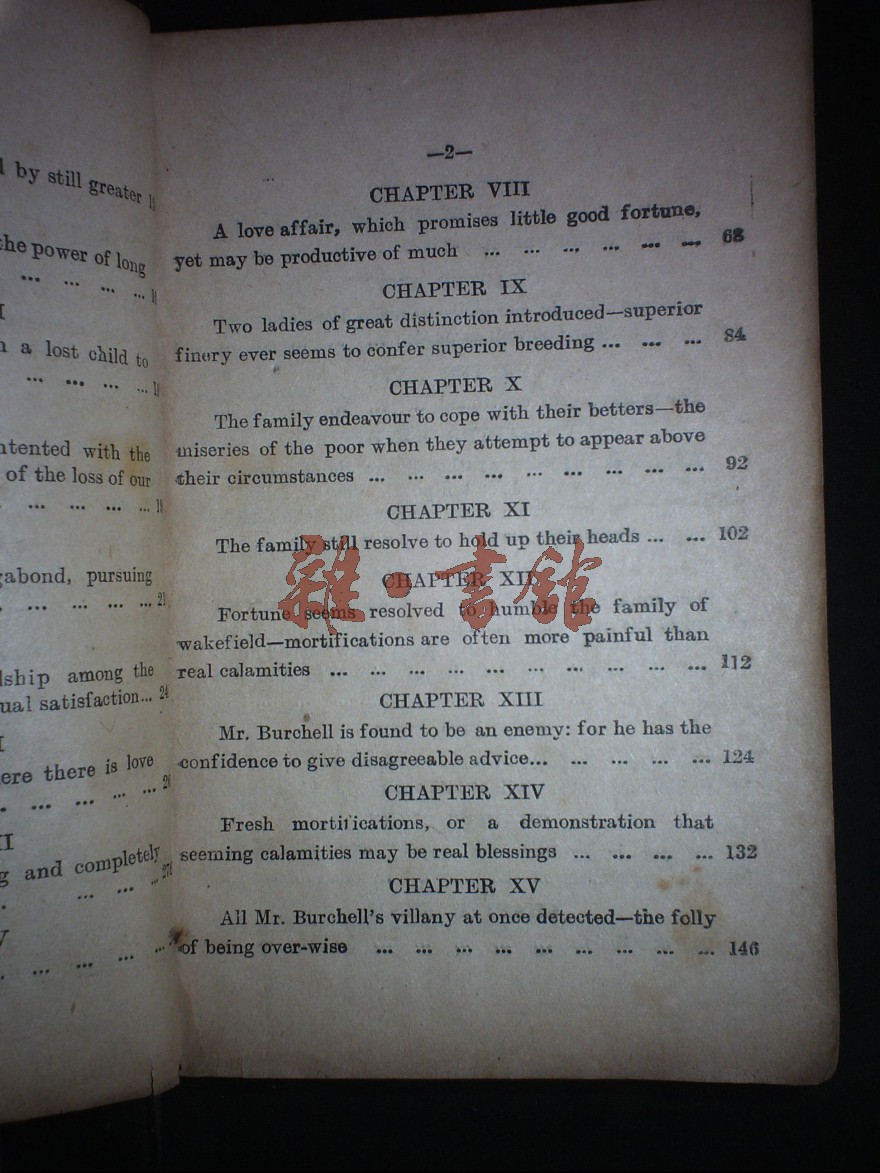 l by still greater
the power of long
... ... ... ...
n a lost child to
... ... ... ...
ntented with the
of the loss of our
... ... ... ...
gabond, pursuing
... ... ... ... 21
dship among the
ual satisfaction... 24
ere there is love
... ... ... ...
II
g and completely
... ... ...
V
... ... ... ...
—2—
CHAPTER VIII
A love affair, which promises little good fortune,
yet may be productive of much ... ... ... ... ... ... 68
CHAPTER IX
Two ladies of great distinction introduced—superior
finery ever seems to confer superior breeding ... ... ... 84
CHAPTER X
The family endeavour to cope with their betters—the
miseries of the poor when they attempt to appear above
their circumstances ... ... ... ... ... ... ... ... ... 92
CHAPTER XI
The family still resolve to hold up their heads ... ... 102
CHAPTER XII
Fortune seems resolved to humble the family of
wakefield—mortifications are often more painful than
real calamities ... ... ... ... ... ... ... ... ... ... 112
CHAPTER XIII
Mr. Burchell is found to be an enemy: for he has the
confidence to give disagreeable advice... ... ... ... ... 124
CHAPTER XIV
Fresh mortifications, or a demonstration that
seeming calamities may be real blessings ... ... ... ... 132
CHAPTER XV
All Mr. Burchell's villany at once detected—the folly
of being over-wise ... ... ... ... ... ... ... ... ... 146
雜·書館